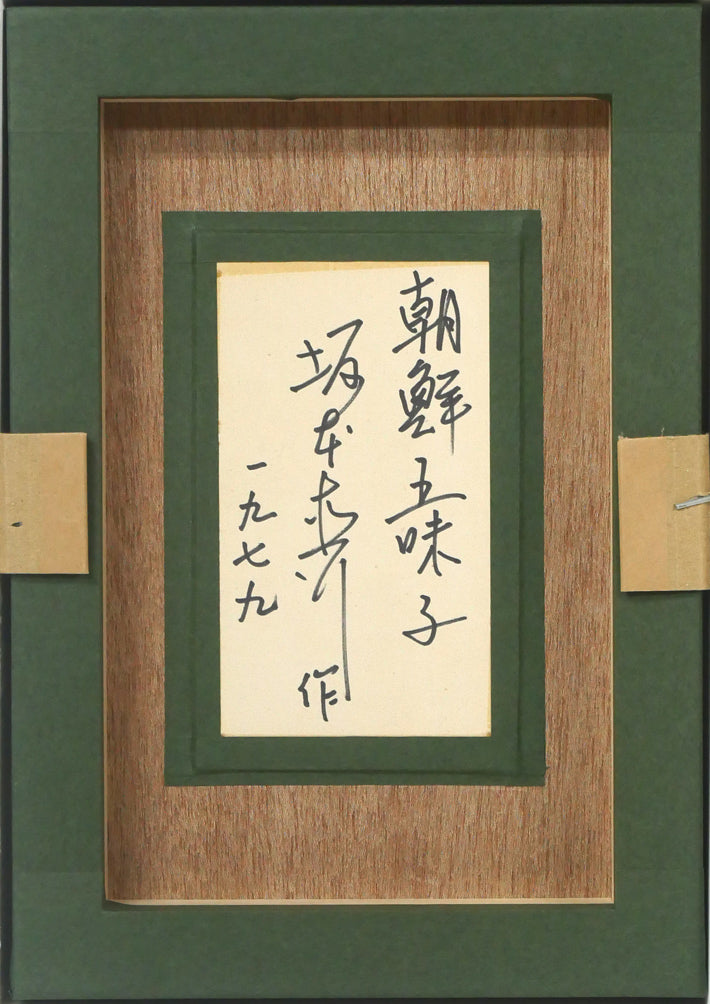 朝鮮五味子
坂本直行 作
一九七九